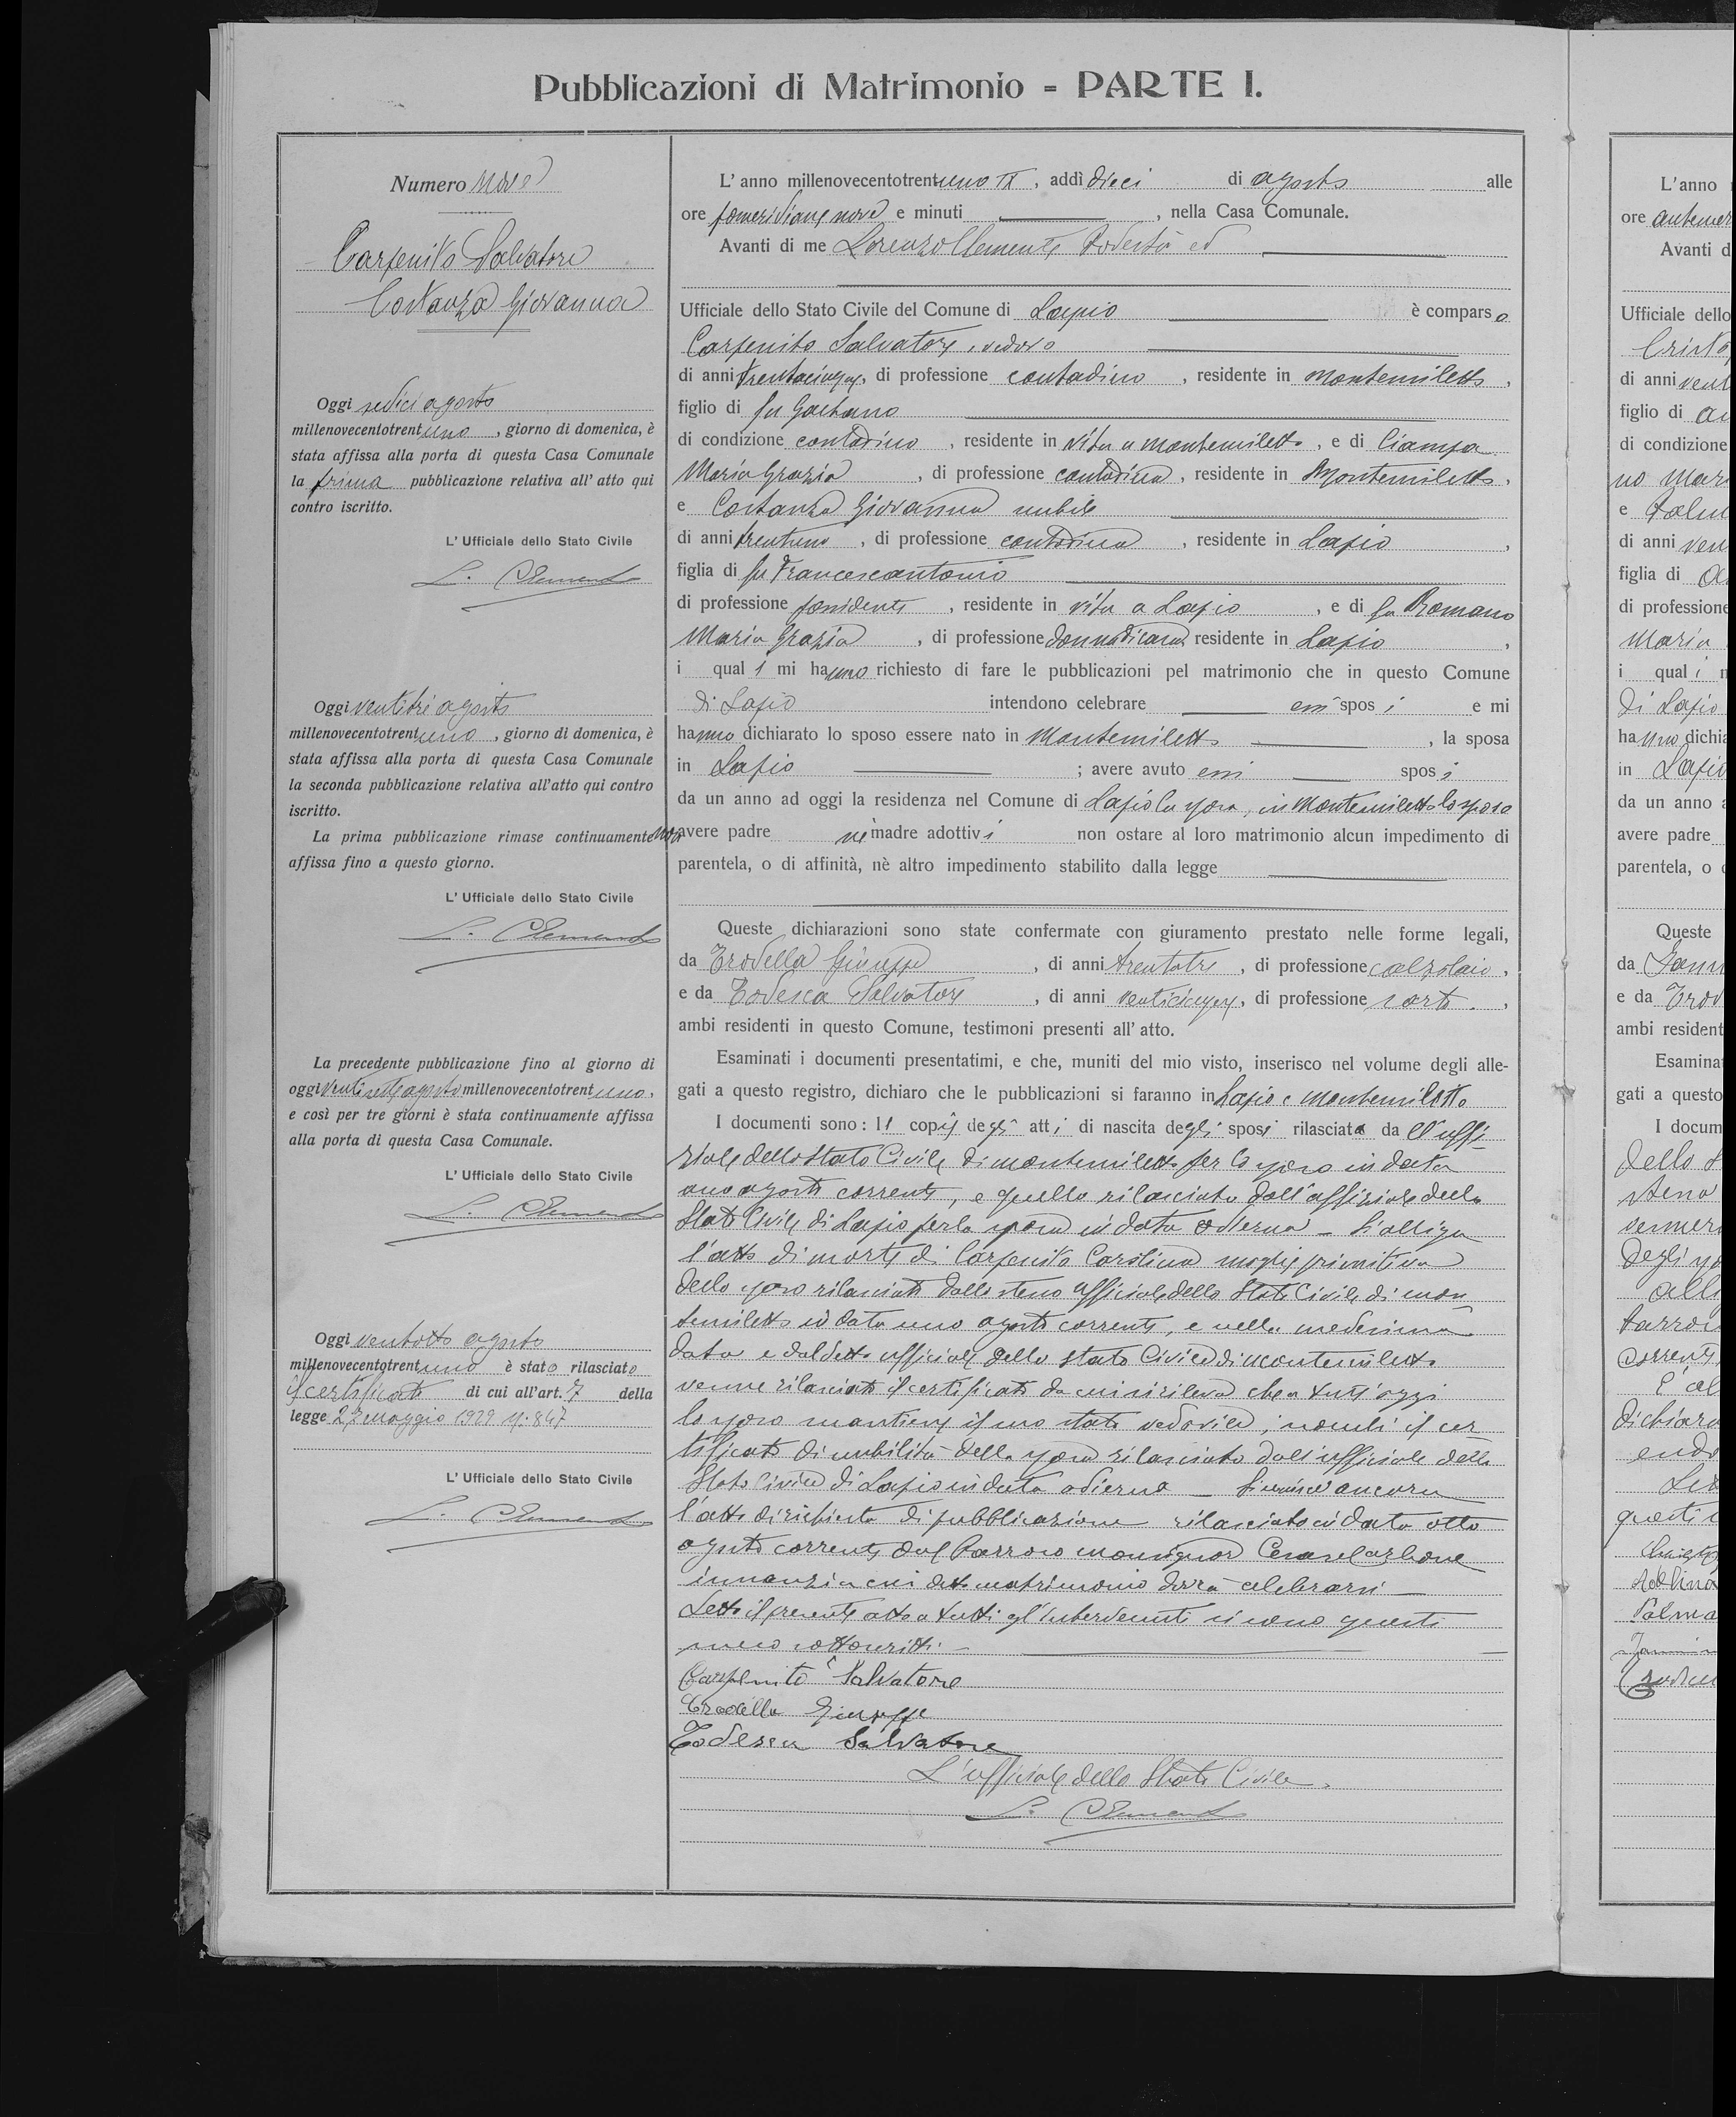 Pubblicazioni di Matrimonio = PARTE I.
Numero nove
Carpenito Salvatore
Costanza Giovanna
Oggi sedici agosto
millenovecentotrentuno, giorno di domenica, è
stata affissa alla porta di questa Casa Comunale
la prima pubblicazione relativa all' atto qui
contro iscritto.
L' Ufficiale dello Stato Civile
L. Clemente
Oggi ventitrè agosto
millenovecentotrentuno, giorno di domenica, è
stata affissa alla porta di questa Casa Comunale
la seconda pubblicazione relativa all'atto qui contro
iscritto.
La prima pubblicazione rimase continuamente
affissa fino a questo giorno.
L' Ufficiale dello Stato Civile
L. Clemente
La precedente pubblicazione fino al giorno di
oggi ventisette agosto millenovecentotrentuno,
e così per tre giorni è stata continuamente affissa
alla porta di questa Casa Comunale.
L' Ufficiale dello Stato Civile
L. Clemente
Oggi ventotto agosto
millenovecentotrentuno è stato rilasciato
il certificato di cui all'art. 7 della
legge 27 maggio 1929 n. 847
L' Ufficiale dello Stato Civile
L. Clemente
L' anno millenovecentotrentuno IX, addì dieci di agosto alle
ore pomeridiane nove e minuti , nella Casa Comunale.
Avanti di me Lorenzo Clemente Podestà ed
Ufficiale dello Stato Civile del Comune di Lapio è comparso
Carpenito Salvatore, vedovo
di anni trentacinque, di professione contadino, residente in Montemiletto,
figlio di fu Gaetano
di condizione contadino, residente in vita a Montemiletto, e di Ciampa
Maria Grazia, di professione contadina, residente in Montemiletto,
e Costanza Giovanna nubile
di anni trentuno, di professione contadina, residente in Lapio,
figlia di fu Francescantonio
di professione possidente, residente in vita a Lapio, e di fu Romano
Maria Grazia, di professione donna di casa residente in Lapio,
i quali mi hanno richiesto di fare le pubblicazioni pel matrimonio che in questo Comune
di Lapio intendono celebrare essi sposi e mi
hanno dichiarato lo sposo essere nato in Montemiletto, la sposa
in Lapio ; avere avuto essi sposi
da un anno ad oggi la residenza nel Comune di Lapio la sposa, in Montemiletto lo sposo
non avere padre nè madre adottivi non ostare al loro matrimonio alcun impedimento di
parentela, o di affinità, nè altro impedimento stabilito dalla legge
Queste dichiarazioni sono state confermate con giuramento prestato nelle forme legali,
da Trodella Giuseppe, di anni trentatre, di professione calzolaio,
e da Todesca Salvatore, di anni venticinque, di professione sarto.,
ambi residenti in questo Comune, testimoni presenti all' atto.
Esaminati i documenti presentatimi, e che, muniti del mio visto, inserisco nel volume degli alle-
gati a questo registro, dichiaro che le pubblicazioni si faranno in Lapio e Montemiletto
I documenti sono: le copie degli atti di nascita degli sposi rilasciata da ll'uffi
ziale dello Stato Civile di Montemiletto per lo sposo in data
uno agosto corrente, e quella rilasciata dall'uffiziale dello
Stato Civile di Lapio per la sposa in data odierna - Si alliga
l'atto di morte di Carpenito Carolina moglie primitiva
dello sposo rilasciato dallo stesso ufficiale dello Stato Civile di Mon
temiletto in data uno agosto corrente, e nella medesima
data e dal detto ufficiale dello Stato Civile di Montemiletto
venne rilasciato il certificato da cui si rileva che a tutt'oggi
lo sposo mantiene il suo stato vedovile; nonchè il cer
tificato di nubilità della sposa rilasciato dall'ufficiale dello
Stato Civile di Lapio in data odierna - Si unisce ancora
l'atto di richiesta di pubblicazione rilasciato in data otto
agosto corrente dal Parroco monsignor Carbone
innanzi a cui detto matrimonio dovrà celebrarsi -
Letto il presente atto a tutti gl'intervenuti si sono questi
meco sottoscritti. -
Carpenito Salvatore
Trodella Giuseppe
Todesca Salvatore
L'ufficiale dello Stato Civile.
L. Clemente
L'anno
ore
Avanti d
Ufficiale dello
di anni
figlio di
di condizione
no Mar
e
di anni
figlia di
di professione
Maria
i quali
di Lapio
hanno dichia
in Lapio
da un anno a
avere padre
parentela, o
Queste
da
e da Trod
ambi resident
Esaminat
gati a questo
I docum
dello S
degli sp
corrente
dichiara
questi